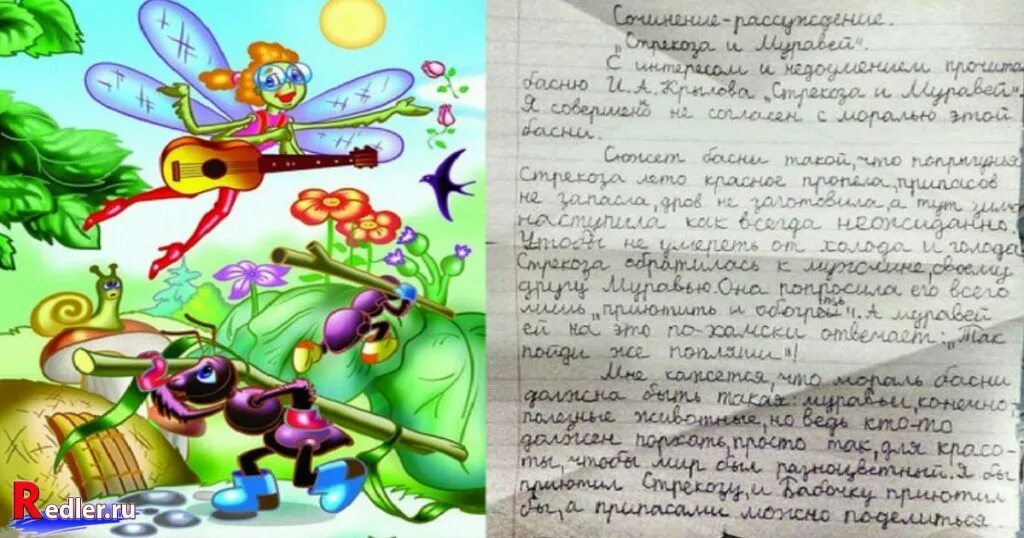 Сочинение-рассуждение.
„Стрекоза и Муравей".
С интересом и недоумением прочитал
басню И.А.Крылова „Стрекоза и Муравей".
Я совершено не согласен с моралью этой
басни.
Сюжет басни такой, что попрыгунья
Стрекоза лето красное пропела, припасов
не запасла, дров не заготовила, а тут зима
наступила как всегда неожиданно.
Чтобы не умереть от холода и голода
Стрекоза обратилась к мужчине, своему
другу Муравью. Она попросила его всего
лишь „приютить и обогреть". А муравей
ей на это по-хамски отвечает: „Так
пойди же попляши"!
Мне кажется, что мораль басни
должна быть такая: муравьи, конечно,
полезные животные, но ведь кто-то
должен порхать, просто так, для красо-
ты, чтобы мир был разноцветный. Я бы
приютил Стрекозу, и Бабочку приютил
бы, а припасами можно поделиться.
Redler.ru